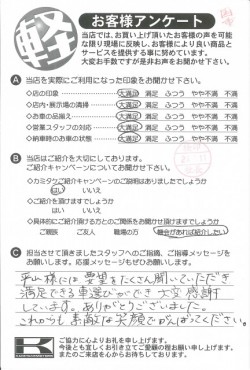 軽
お客様アンケート
当店では、お買い上げ頂いたお客様の声を可能
な限り現場に反映し、お客様により良い商品と
サービスを提供する事に努めています。
大変お手数ですが是非お声をお聞かせ下さい。
A 当店を実際にご利用になった印象をお聞かせ下さい。
◇店の印象 大満足 満足 ふつう やや不満 不満
◇店内・展示場の清掃 大満足 満足 ふつう やや不満 不満
◇お車の品揃え 大満足 満足 ふつう やや不満 不満
◇営業スタッフの対応 大満足 満足 ふつう やや不満 不満
◇納車時のお車の状態 大満足 満足 ふつう やや不満 不満
B 当店はご紹介を大切にしております。
ご紹介キャンペーンについてお聞かせ下さい。
◇カミタウご紹介キャンペーンのご説明はありましたでしょうか
はい いいえ
◇ご紹介を頂けますでしょうか
はい いいえ
◇具体的にご紹介頂ける方とのご関係をお聞かせ頂けますでしょうか
ご親族 ご友人 職場の方 機会があれば紹介したい
C 担当させて頂きましたスタッフへのご指摘、ご指導メッセージを
お願いします。応援メッセージもぜひお願いします。
平山様には要望をたくさん聞いていただき
満足できる車選びができ大変感謝
しています。ありがとうございました。
これからも素敵な笑顔でがんばってください。
K
ご協力に心よりお礼を申し上げます。
今後とも宜しくお引き立てご愛顧の程お願い申し上げます。
またのご来店を心からお待ちしております。